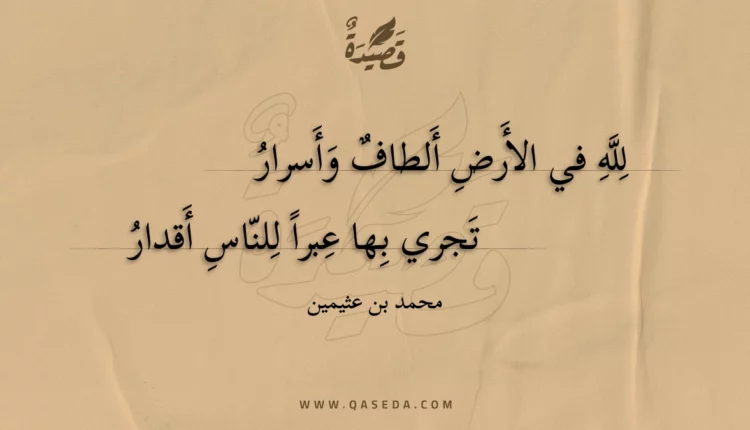 قَصِيدَةٌ
لِلَّهِ في الأَرضِ أَلطافٌ وَأَسرارُ
تَجري بِها عِبراً لِلنّاسِ أَقدارُ
محمد بن عثيمين
WWW.QASEDA.COM